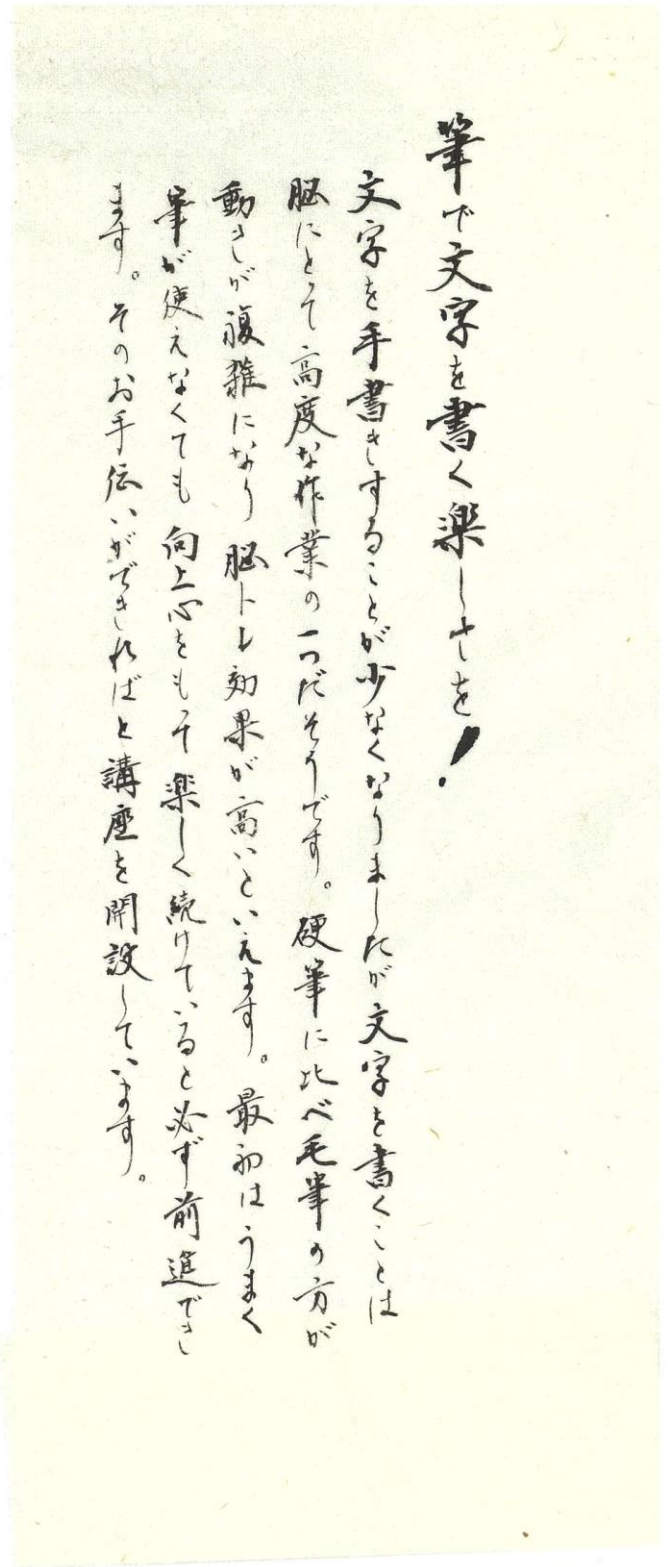 筆で文字を書く楽しさを！
文字を手書きすることが少なくなりましたが文字を書くことは
脳にとって高度な作業の一つだそうです。硬筆に比べ毛筆の方が
動きが複雑になり脳トレ効果が高いといえます。最初はうまく
筆が使えなくても向上心をもって楽しく続けていると必ず前進でき
ます。そのお手伝いができればと講座を開設しています。